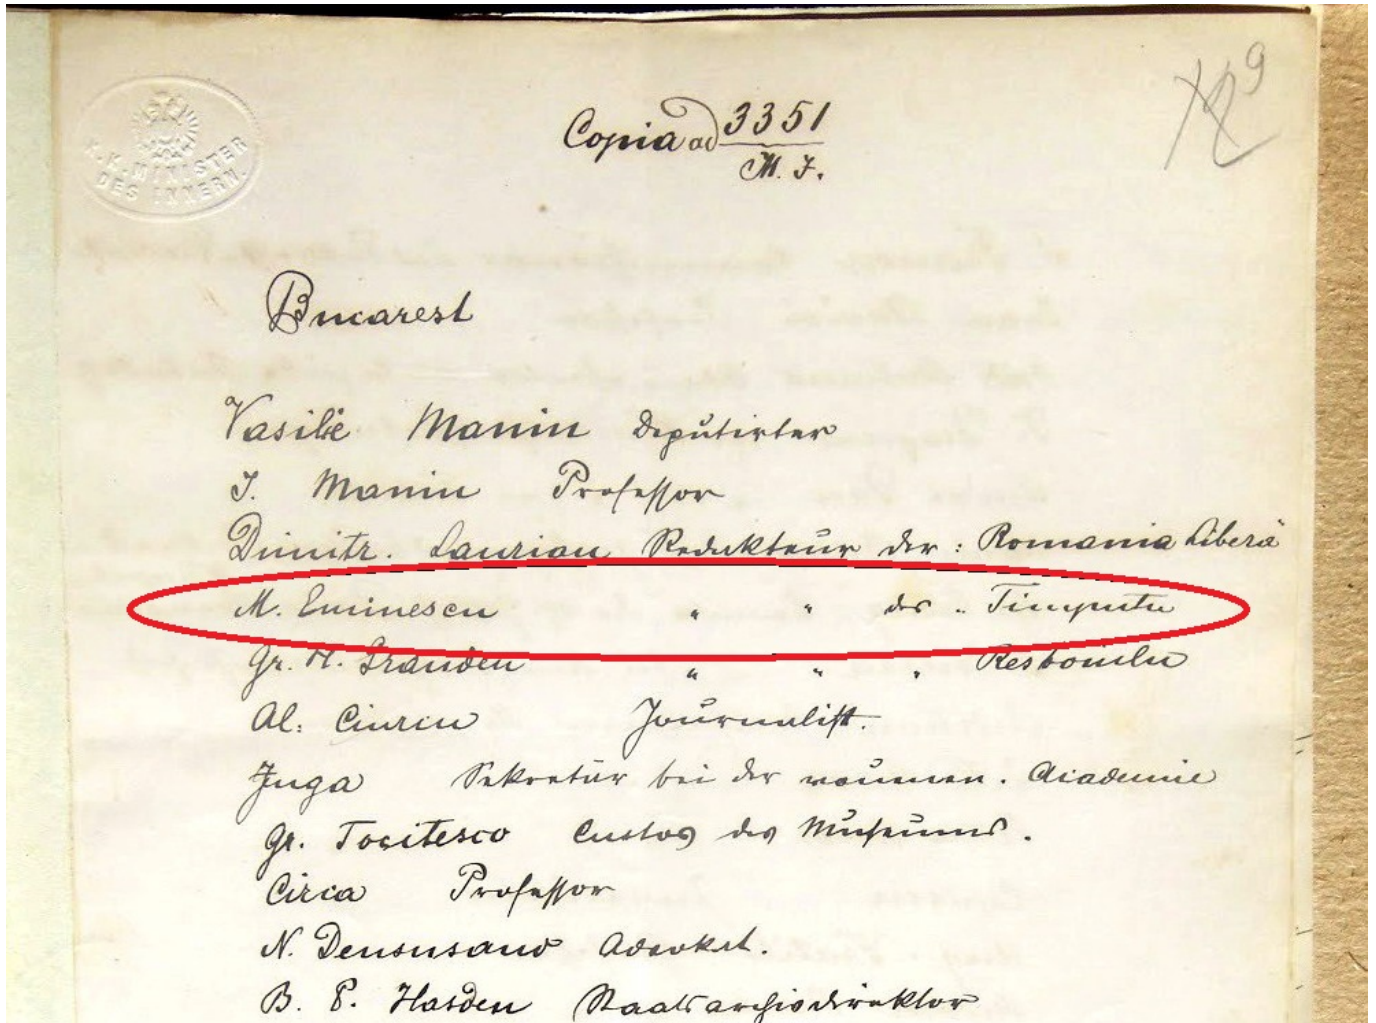 K. K. MINISTER
DES INNERN.
Copia ad 3351
M. I.
9
Bucarest
Vasilie Maniu Deputirter
I. Maniu Professor
Dimitr. Laurian Redakteur der : Romania Liberă
M. Eminescu " " des " Timpulu
Gr. H. Grandea " " " Resboiulu
Al: Ciurcu Journalist.
Juga Sekretär bei der roumen. Academie
Gr. Tocitesco Custos des Museums.
Circa Professor
N. Densusano Advokat.
B. P. Hasdeu Staatsarchivdirektor